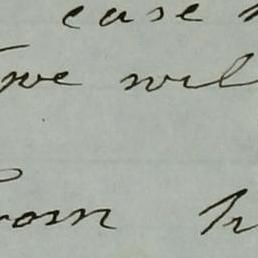 case
we wil
from h